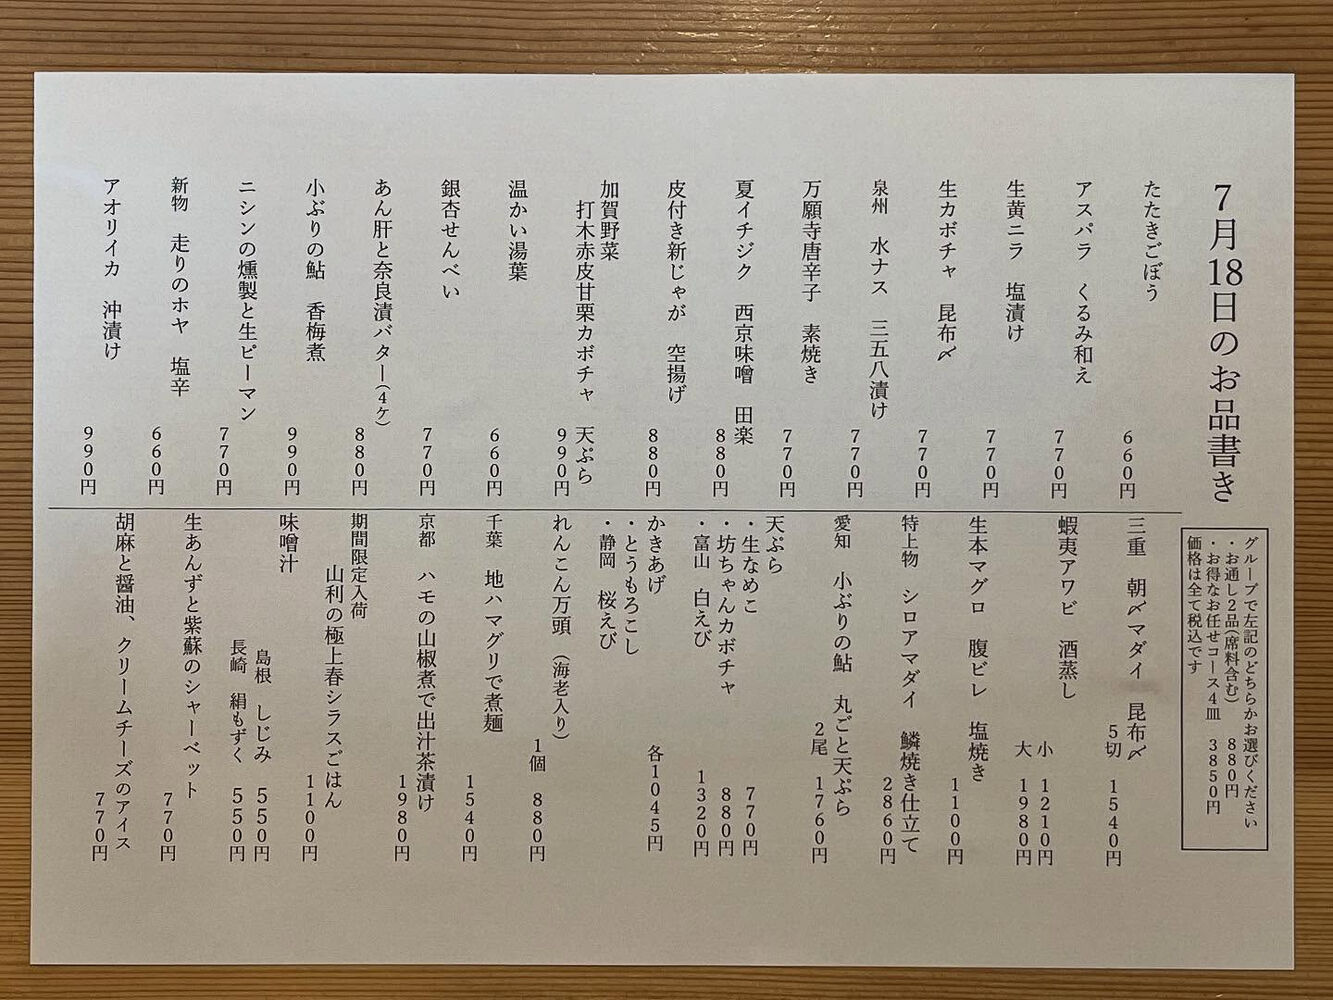 7月18日のお品書き
グループで左記のどちらかお選びください
・お通し2品(席料含む) 880円
・お得なお任せコース4皿 3850円
価格は全て税込です
たたきごぼう 660円
アスパラ くるみ和え 770円
生黄ニラ 塩漬け 770円
生カボチャ 昆布〆 770円
泉州 水ナス 三五八漬け 770円
万願寺唐辛子 素焼き 770円
夏イチジク 西京味噌 田楽 880円
皮付き新じゃが 空揚げ 880円
加賀野菜
打木赤皮甘栗カボチャ 天ぷら 990円
温かい湯葉 660円
銀杏せんべい 770円
あん肝と奈良漬バター(4ケ) 880円
小ぶりの鮎 香梅煮 990円
ニシンの燻製と生ピーマン 770円
新物 走りのホヤ 塩辛 660円
アオリイカ 沖漬け 990円
三重 朝〆マダイ 昆布〆 5切 1540円
蝦夷アワビ 酒蒸し 小 1210円
大 1980円
生本マグロ 腹ビレ 塩焼き 1100円
特上物 シロアマダイ 鱗焼き仕立て 2860円
愛知 小ぶりの鮎 丸ごと天ぷら 2尾 1760円
天ぷら
・生なめこ 770円
・坊ちゃんカボチャ 880円
・富山 白えび 1320円
かきあげ 各1045円
・とうもろこし
・静岡 桜えび
れんこん万頭 (海老入り) 1個 880円
千葉 地ハマグリで煮麺 1540円
京都 ハモの山椒煮で出汁茶漬け 1980円
期間限定入荷
山利の極上春シラスごはん 1100円
味噌汁
島根 しじみ 550円
長崎 絹もずく 550円
生あんずと紫蘇のシャーベット 770円
胡麻と醤油、クリームチーズのアイス 770円